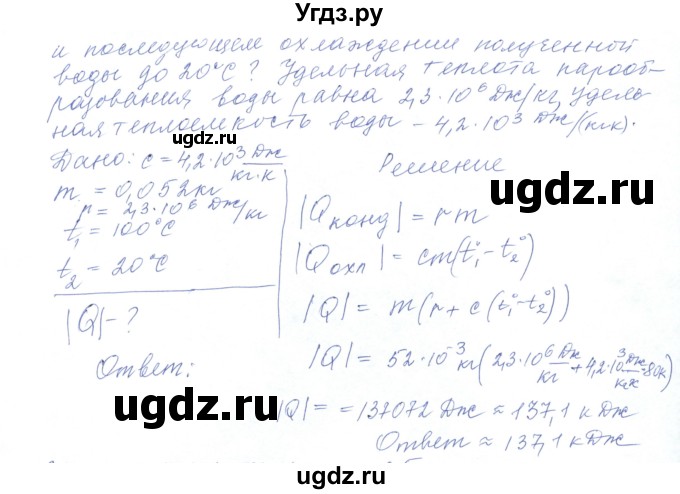 Угдз.ру
и последующем охлаждении полученной
воды до 20°C? Удельная теплота парооб-
разования воды равна 2,3·10⁶ Дж/кг, удель-
ная теплоемкость воды – 4,2·10³ Дж/(кг·к).
Дано: c = 4,2·10³ Дж/кг·к
m = 0,052 кг
r = 2,3·10⁶ Дж/кг
t₁ = 100°C
t₂ = 20°C
|Q| - ?
Ответ:
Решение
|Qконд| = rm
|Qохл| = cm(t₁° - t₂°)
|Q| = m(r + c(t₁° - t₂°))
|Q| = 52·10⁻³ кг(2,3·10⁶ Дж/кг + 4,2·10³ Дж/кг·к · 80к)
|Q| = = 137072 Дж ≈ 137,1 кДж
Ответ ≈ 137,1 кДж
ugdz.ru
ugdz.ru
ugdz.ru
ugdz.ru
ugdz.ru